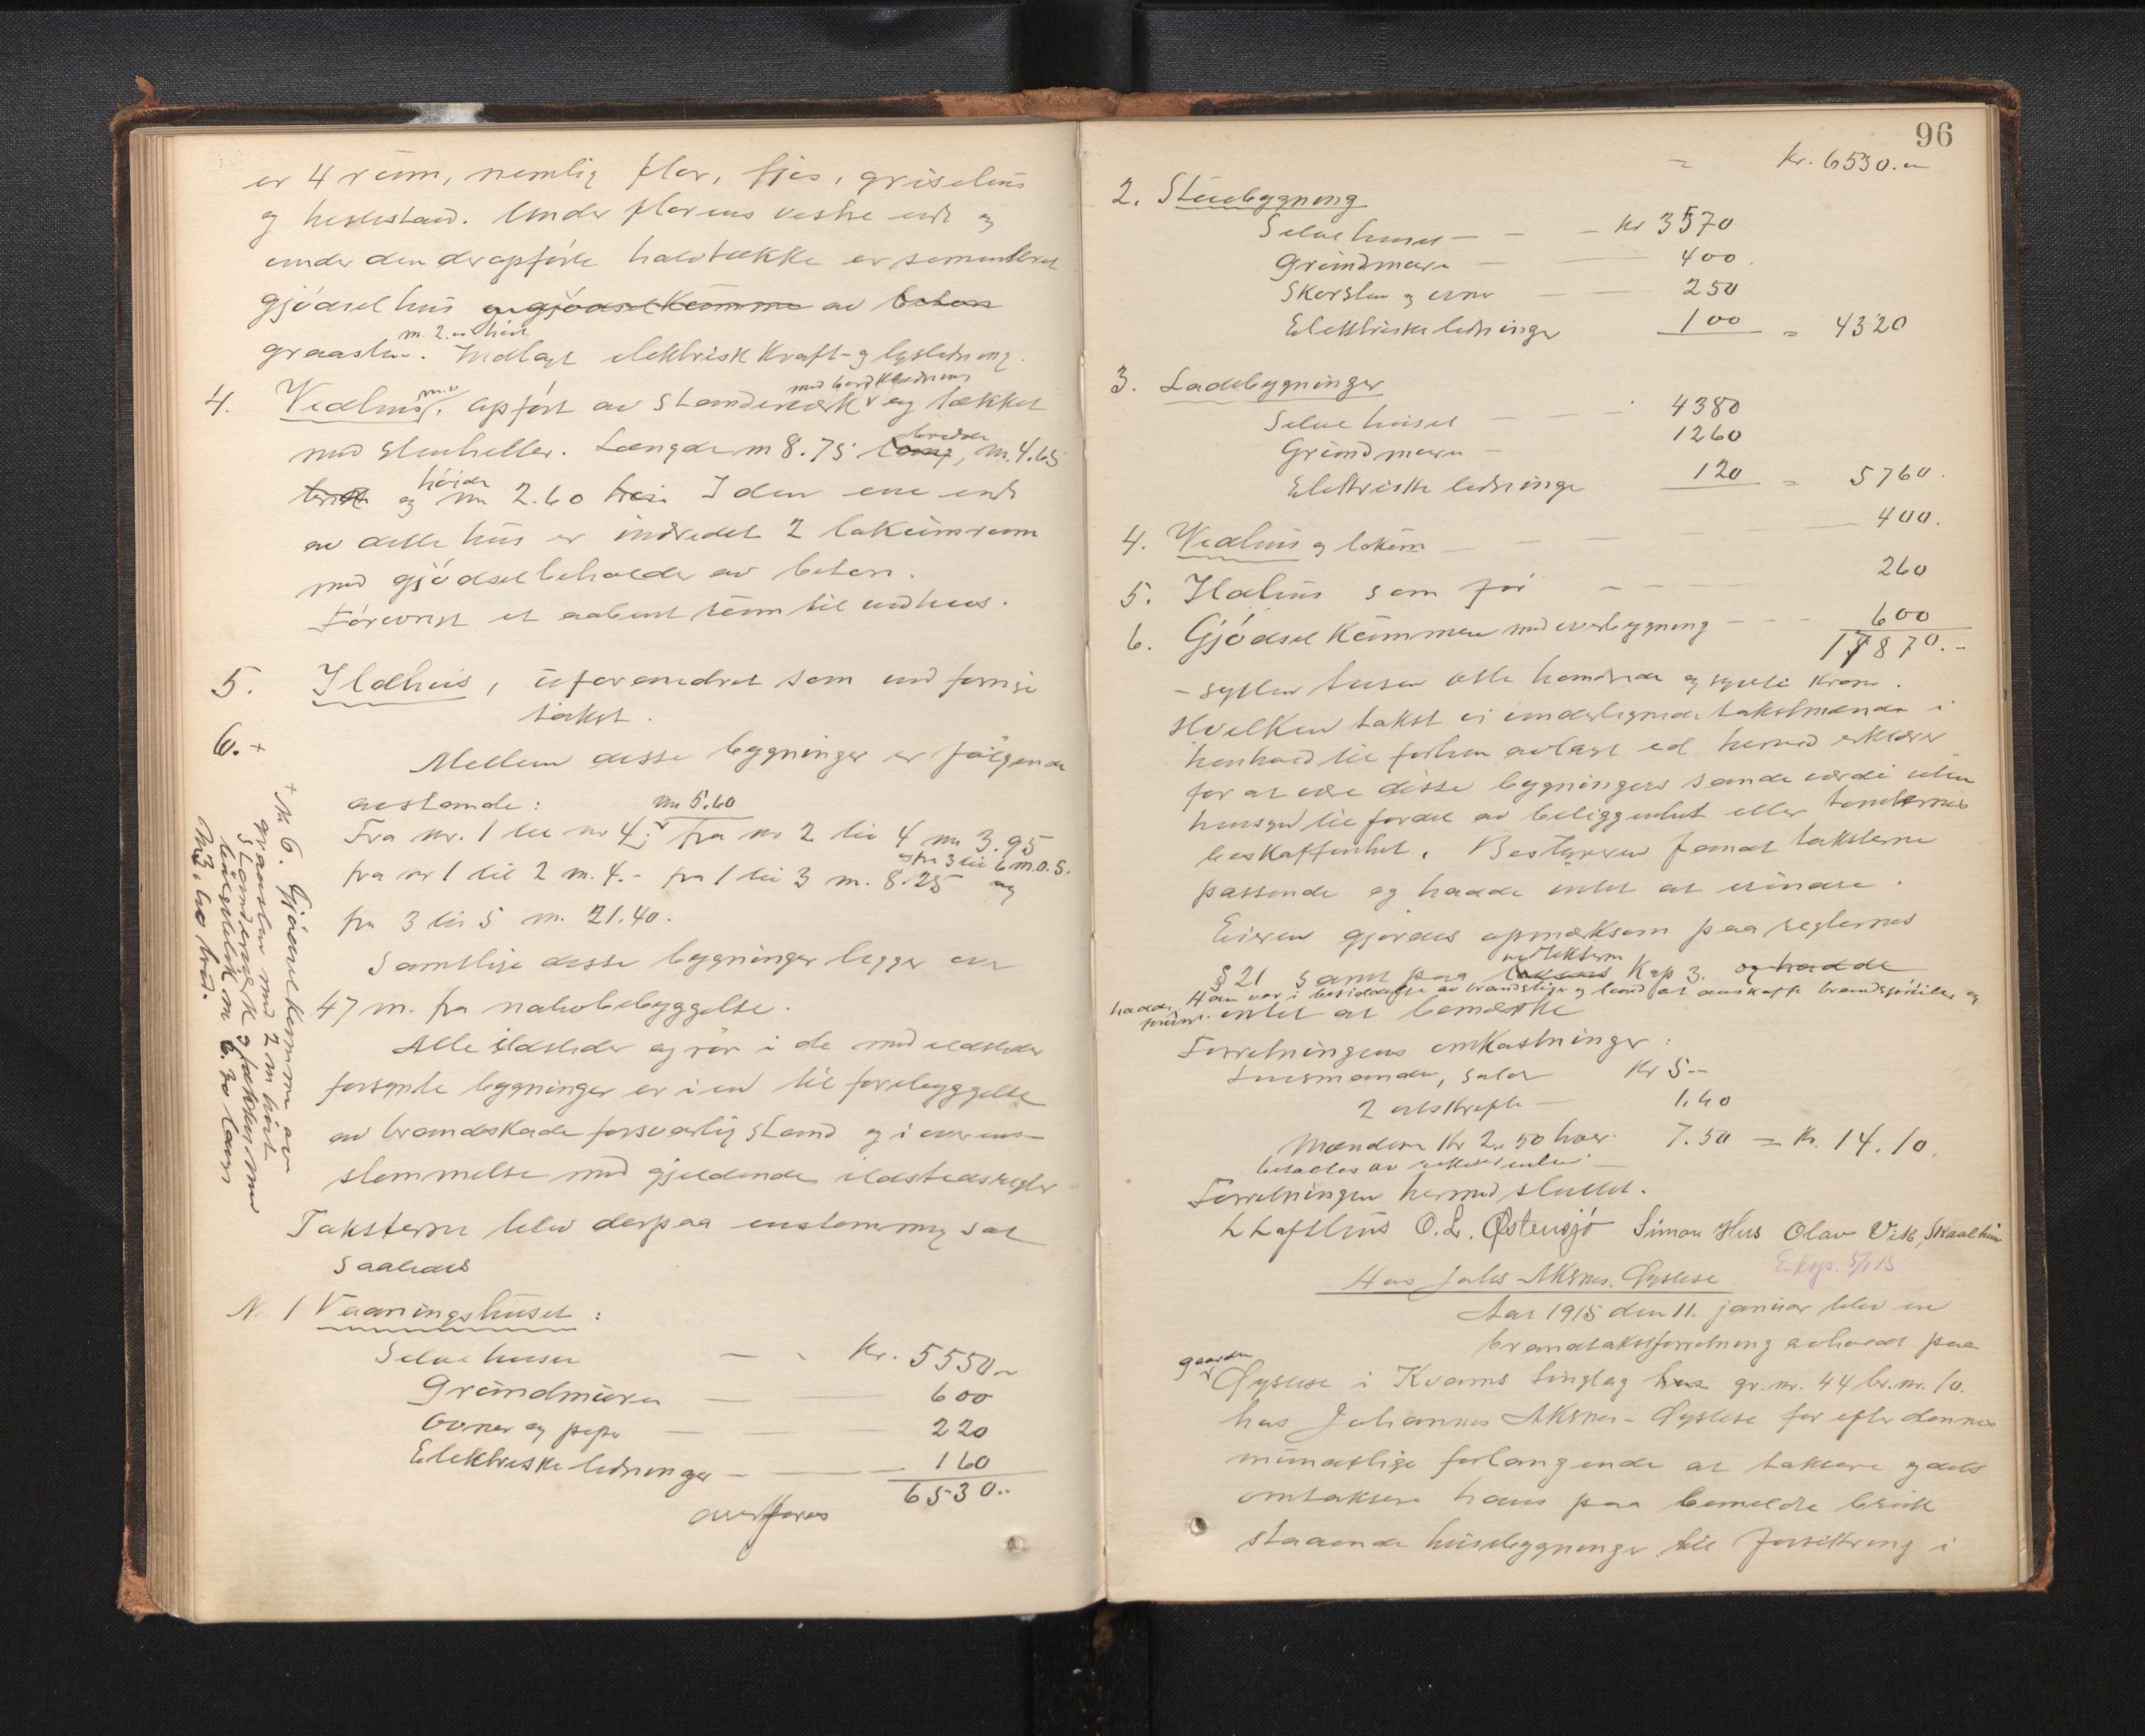 er 4 rum, nemlig flor, fjøs, grisehus
og hestestand. Under florens vestre ende og
under den deropførte halvtække er sementeret
gjødselhus og gjødselkumme av beton
m. 2.00 høit
graasten. Indlagt elektrisk kraft- og lysledning.
med bordklædning
4. Vedhus m.v. opført av standerverk og tækket
bredde
med stenheller. Længde m 8.75 lang, m. 4.65
høide
bredt og m 2.60 høi. I den ene ende
av dette hus er indredet 2 lokumrum
med gjødselbeholder av beton.
Forøvrigt et aabent rum til vedhus.
5. Ildhus, uforandret som ved forrige
takst.
6. +
Mellem disse bygninger er følgende
avstande: m 5.60
Fra nr. 1 til nr 4; fra nr 2 til 4 m 3.95
og fra 3 til 6 m. 0.5.
fra nr 1 til 2 m. 4.- fra 1 til 3 m. 8.25 og
fra 3 til 5 m. 21.40.
Samtlige disse bygninger ligger over
47 m. fra nabobebyggelse.
Alle ildsteder og rør i de med ildsteder
forsynte bygninger er i en til forebyggelse
av brandskade forsvarlig stand og i overens-
stemmelse med gjeldende ildstedsregler
Taksterne blev derpaa enstemmig sat
saaledes
N. 1 Vaaningshuset:
Selve huset — - Kr. 5550.-
Grundmuren — 600
Ovner og piper — 220
Elektriske ledninger — 160
6530..
overføres
+ Nr. 6. Gjødselkumme av
graasten med 2 m høit
standerverk og tækket med
bølgeblik m 6.30 lang
m 3.60 bred.
96
- Kr. 6530.-
2. Stuebygning
Selve huset — Kr 3570
Grundmuren — 400
Skorsten og ovner — 250
Elektriske ledninger 100 = 4320
3. Ladebygninger
Selve huset — 4380
Grundmuren — 1260
Elektriske ledninger 120 = 5760.
4. Vedhus og lokum — 400.
5. Ildhus som før — 260
6. Gjødselkummen med overbygning — 600
17870.-
- sytten tusen otte hundrede og sytti kroner.
Hvilken takst vi undertegnede takstmænd i
henhold til forhen avlagt ed hermed erklærer
for at være disse bygningers sande værdi uten
hensyn til fordel av beliggenhet eller tomternes
beskaffenhet. Bestyreren fandt taksterne
passende og hadde intet at erindre.
Eieren gjordes opmærksom paa reglernes
§ 21 samt paa Kap 3. og hadde
Han var i besiddelse av brandstige og lovet at anskaffe brandsprøite og
hadde intet at bemærke
Forretningens omkostninger:
Lensmanden, salær Kr 5.-
2 utskrifter — 1.60
Mændene Kr 2.50 hver. 7.50 = Kr. 14.10.
betaltes av rekvirenten —
Forretningen hermed sluttet.
L Lofthus O. L. Østensjø Simon Hus Olav Vik, Skaalheim
Eksp. 5/1 15
Hos Johs Aksnes. Øystese
Aar 1915 den 11. januar blev en
brandtakstforretning avholdt paa
gaarden
Øystese i Kvams tinglag hus gr.nr. 44 br.nr. 10.
hos Johannes Aksnes-Øystese for efter dennes
mundtlige forlangende at taksere og dels
omtaksere hans paa bemeldte bruk
staaende husebygninger til forsikring i